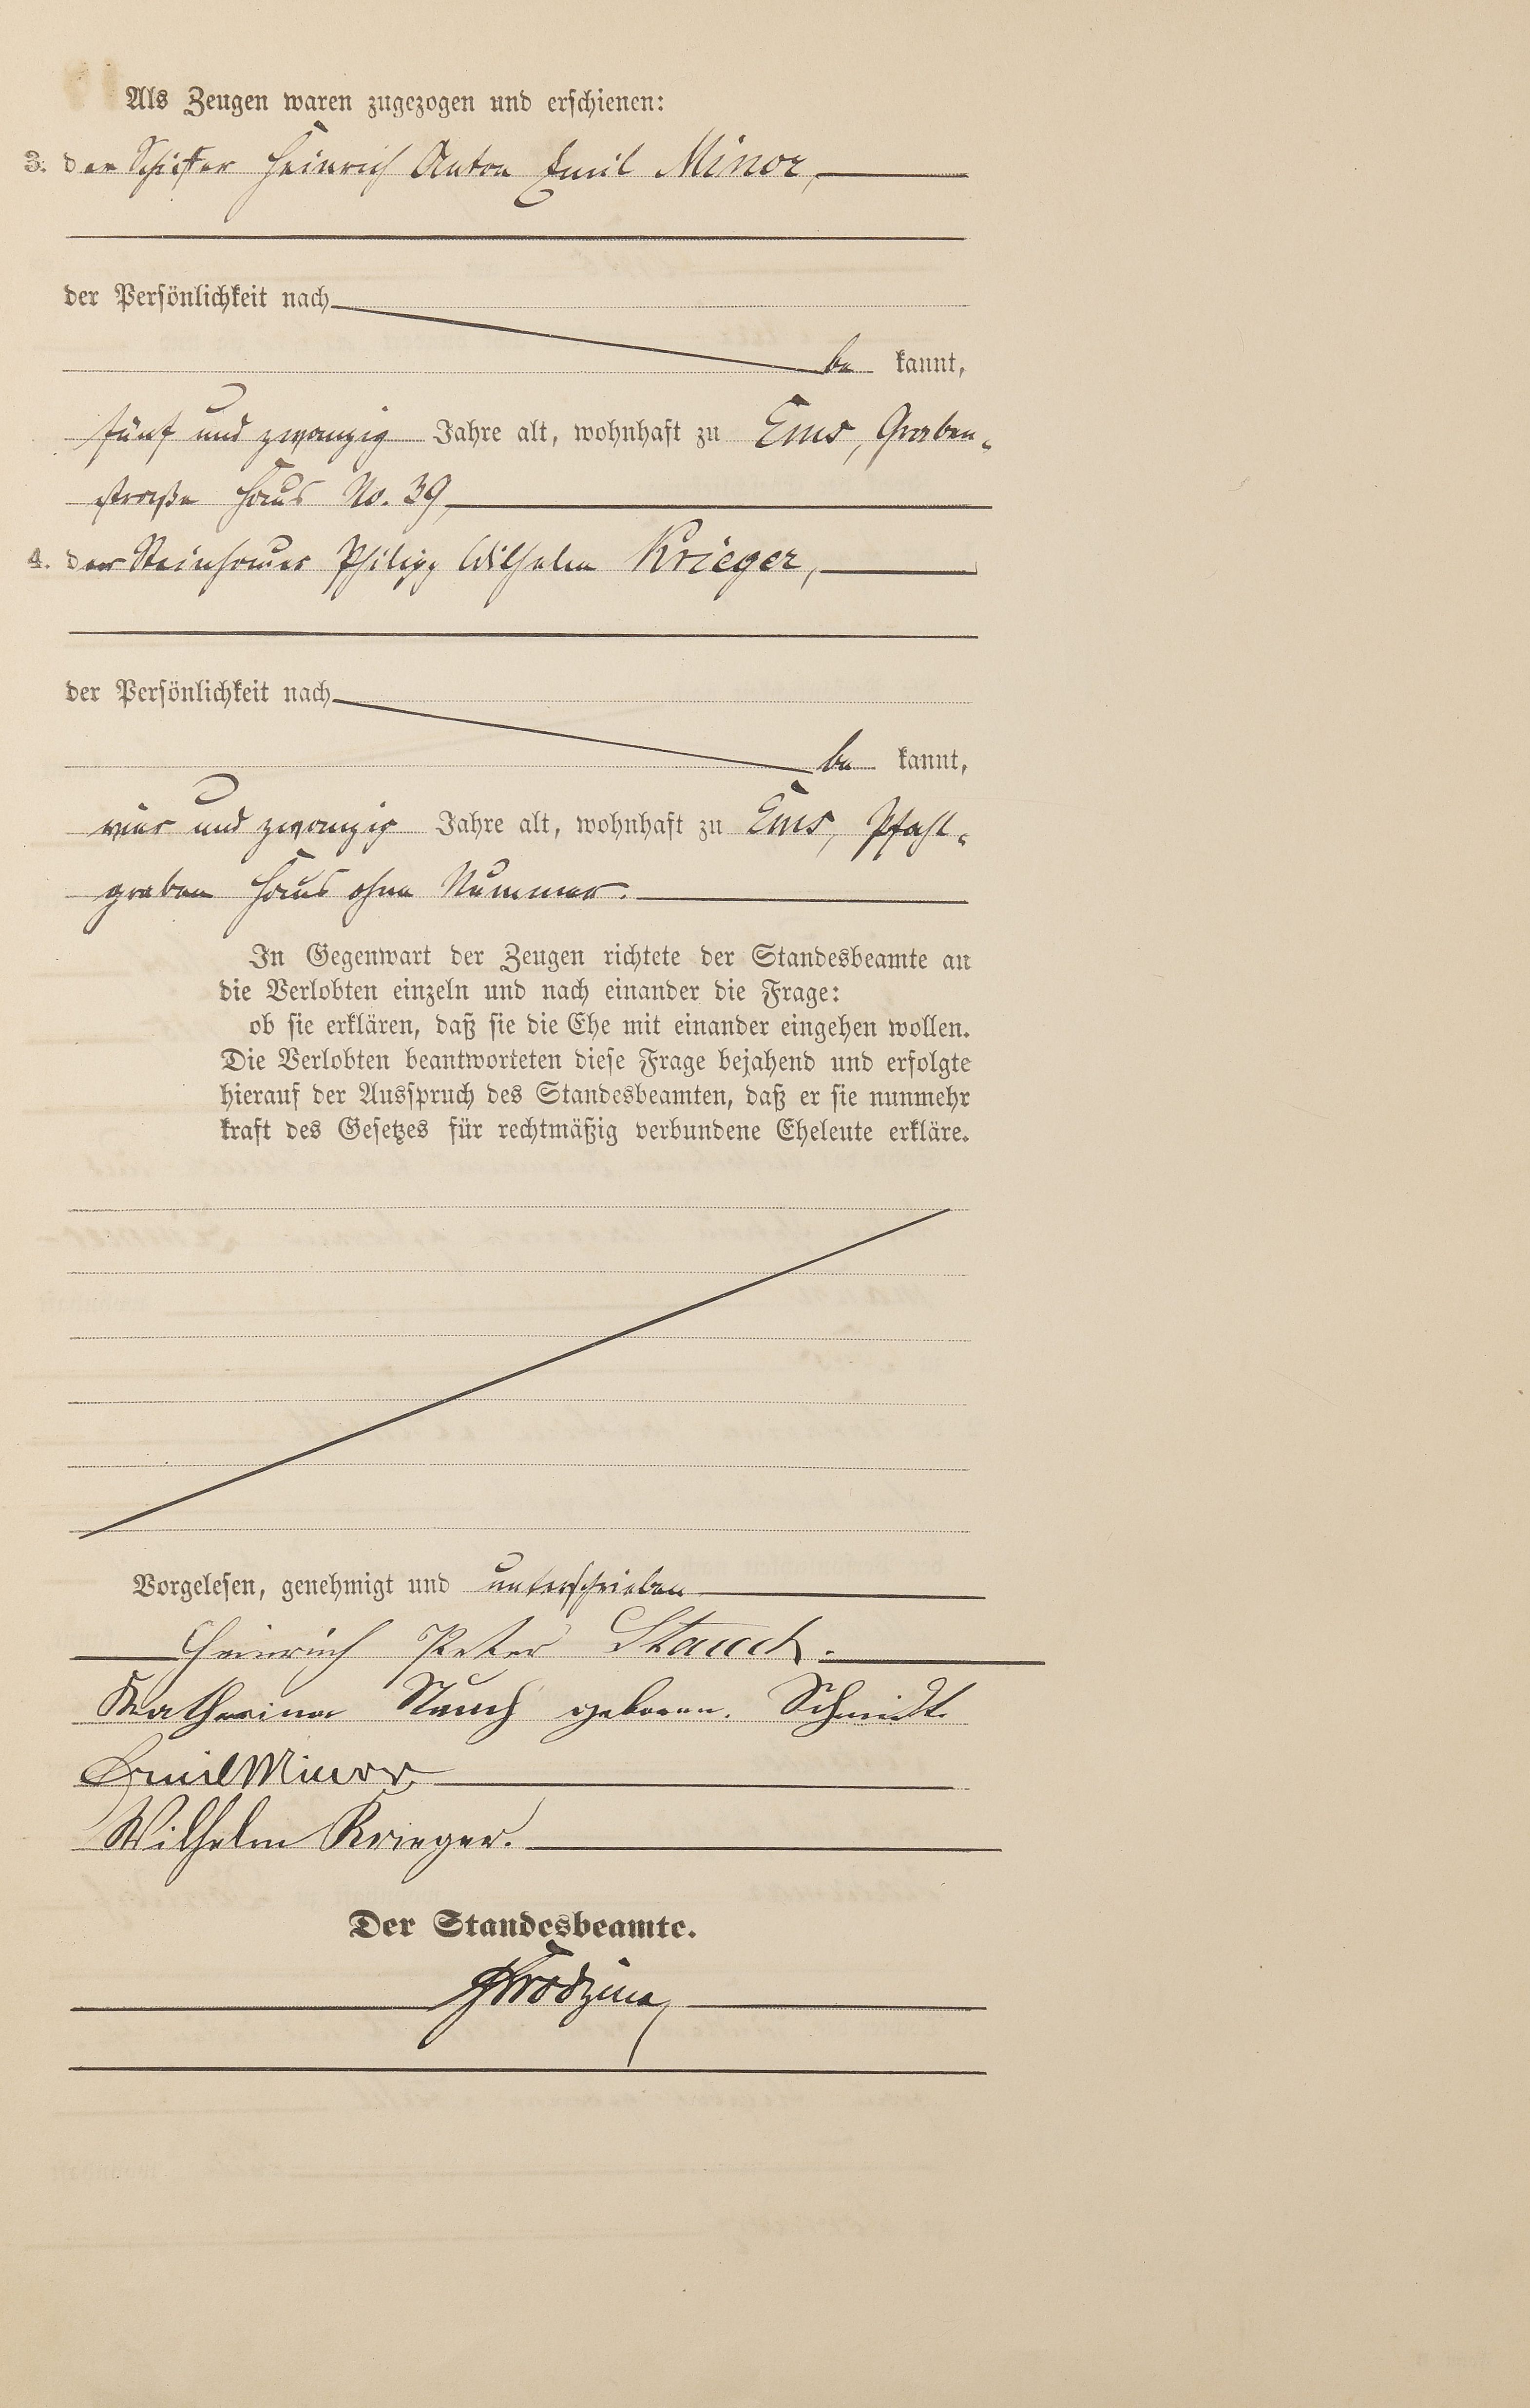 Als Zeugen waren zugezogen und erschienen:
3. der Schiffer Heinrich Anton Emil Minor,
der Persönlichkeit nach
be kannt,
fünf und zwanzig Jahre alt, wohnhaft zu Ems, Graben-
straße Haus No. 39,
4. der Steinhauer Philipp Wilhelm Krieger,
der Persönlichkeit nach
be kannt,
vier und zwanzig Jahre alt, wohnhaft zu Ems, Pfahl-
graben Haus ohne Nummer.
In Gegenwart der Zeugen richtete der Standesbeamte an
die Verlobten einzeln und nach einander die Frage:
ob sie erklären, daß sie die Ehe mit einander eingehen wollen.
Die Verlobten beantworteten diese Frage bejahend und erfolgte
hierauf der Ausspruch des Standesbeamten, daß er sie nunmehr
kraft des Gesetzes für rechtmäßig verbundene Eheleute erkläre.
Vorgelesen, genehmigt und unterschrieben
Heinrich Peter Stauch.
Katharina Stauch geboren. Schmidt.
Emil Minor
Wilhelm Krieger.
Der Standesbeamte.